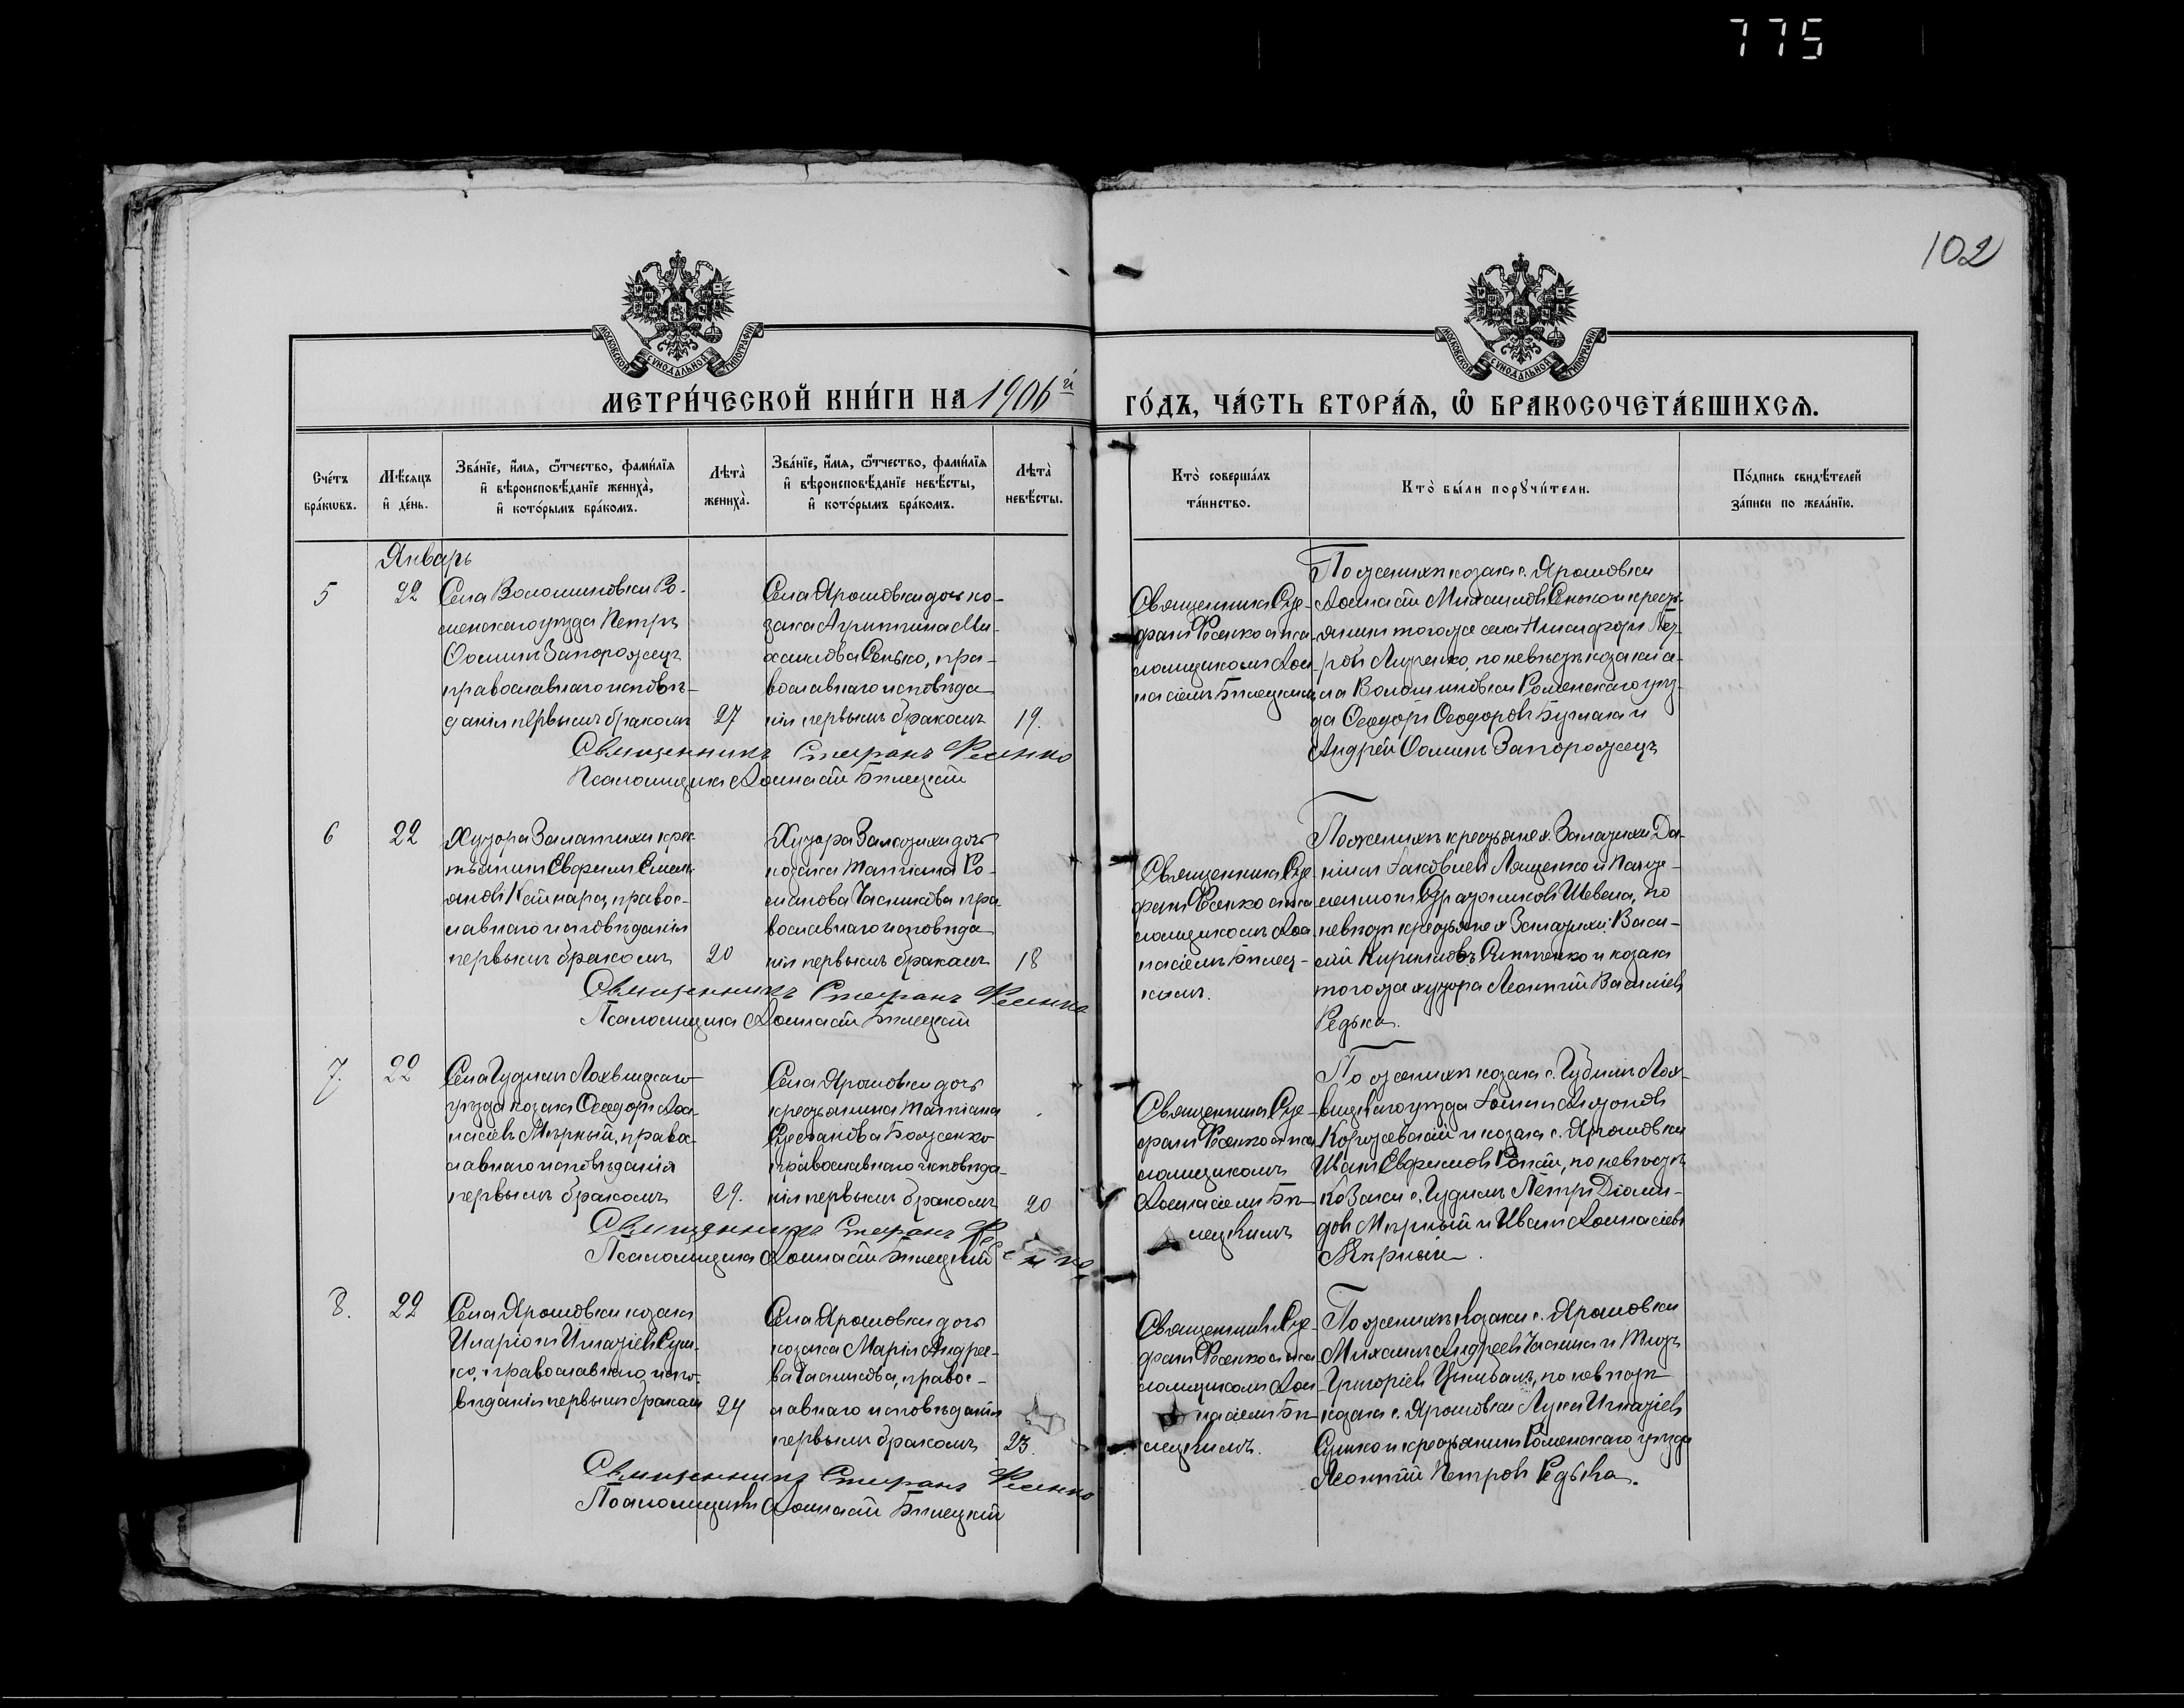 775
102
МОСКОВСКОЙ СѴНОДАЛЬНОЙ ТИПОГРАФІИ
МОСКОВСКОЙ СѴНОДАЛЬНОЙ ТИПОГРАФІИ
МЕТРИ́ЧЕСКОЙ КНИ́ГИ НА 1906й ГО́ДЪ, ЧА́СТЬ ВТОРА́Я, Ѽ БРАКОСОЧЕТА́ВШИХСЯ.
Сче́тъ
бра́кѡвъ.
Мѣ́сяцъ
и҆ де́нь.
Зва́нїе, и҆́мя, ѻ҆́тчество, фами́лїя
и҆ вѣроисповѣ́данїе жениха̀,
и҆ кото́рымъ бра́комъ.
Лѣта̀
жениха̀.
Зва́нїе, и҆́мя, ѻ҆́тчество, фами́лїя
и҆ вѣроисповѣ́данїе невѣ́сты,
и҆ кото́рымъ бра́комъ.
Лѣта̀
невѣ́сты.
Кто̀ соверша́лъ
та́инство.
Кто̀ бы́ли порꙋчи́тели.
По́дпись свидѣ́телей
за́писи по жела́нїю.
Январь
5
22
Села Волошиновки Ро-
менскаго уѣзда Петръ
Ѳоминъ Запорожецъ
православнаго исповѣ-
данія первымъ бракомъ
27
Села Ярошовки дочь ко-
зака Агрипина Ми-
хаилова Сенько, пра-
вославнаго исповѣда-
нія первымъ бракомъ
19.
Священникъ Сте-
фанъ Фесенко съ пса-
ломщикомъ Аѳа-
насіемъ Билецкимъ
По женихѣ козаки с. Ярошовки
Аѳанасій Михаиловъ Сенько и кресть-
янинъ того же села Никифоръ Пет-
ровъ по невѣстѣ козаки се-
ла Волошиновки Роменскаго уѣз-
да Ѳеодоръ Ѳеодоровъ и
Андрей Ѳоминъ Запорожецъ
Священникъ Стефанъ Фесенко
Псаломщикъ Аѳанасій Билецкій
6
22
Хутора Залатихи крес-
тьянинъ Евфимъ Емель-
яновъ правос-
лавнаго исповѣданія
первымъ бракомъ
20
Хутора Залатихи дочь
козака Татіана Ро-
манова Часникова пра-
вославнаго исповѣда-
нія первымъ бракомъ
18
Священникъ Сте-
фанъ Фесенко съ пса-
ломщикомъ Аѳа-
насіемъ Билец-
кимъ.
По женихѣ крестьяне х. Залатихи Да-
ніилъ Іаковлевъ Лещенко и Панте-
леимонъ Шевель, по
невѣстѣ крестьяне х. Залатихи Васи-
лій Кирилловъ и козакъ
того же хутора Леонтій Васильевъ
Редька.
Священникъ Стефанъ Фесенко
Псаломщикъ Аѳанасій Билецкій
7.
22
Села Гудимъ Лохвицкаго
уѣзда козакъ Ѳеодоръ Аѳа-
насіевъ Мѣрный, право-
славнаго исповѣданія
первымъ бракомъ
29.
Села Ярошовки дочь
крестьянина Татіана
Стефанова Боженко
православнаго исповѣда-
нія первымъ бракомъ
20
Священникъ Сте-
фанъ Фесенко съ пса-
ломщикомъ
Аѳанасіемъ Би-
лецкимъ
По женихѣ козаки с. Гудимъ Лох-
вицкаго уѣзда
и козакъ с. Ярошовки
Иванъ Евфимовъ по невѣстѣ
козаки с. Гудимъ Петръ Діоми-
довъ Мѣрный и Иванъ Аѳанасіевъ
Мѣрный.
Священникъ Стефанъ Фесенко
Псаломщикъ Аѳанасій Билецкій
8.
22
Села Ярошовки козакъ
Иларіонъ Игнатіевъ Суш-
ко, православнаго испо-
вѣданія первымъ бракомъ
24
Села Ярошовки дочь
козака Марія Андрее-
ва Часникова, правос-
лавнаго исповѣданія
первымъ бракомъ
23.
Священникъ Сте-
фанъ Фесенко съ пса-
ломщикомъ Аѳа-
насіемъ Би-
лецкимъ.
По женихѣ козаки с. Ярошовки
Михаилъ Андреевъ Часникъ и Титъ
Григоріевъ Цымбалъ, по невѣстѣ
козаки с. Ярошовки Лука Игнатіевъ
Сушко и крестьянинъ Роменскаго уѣзда
Леонтій Петровъ Редька.
Священникъ Стефанъ Фесенко
Псаломщикъ Аѳанасій Билецкій